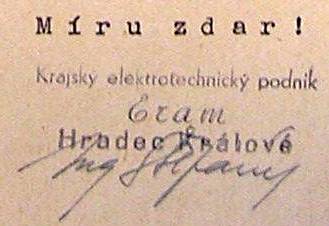 Míru zdar!
Krajský elektrotechnický podnik
Eram
Hradec Králové
Ing Štěpánek